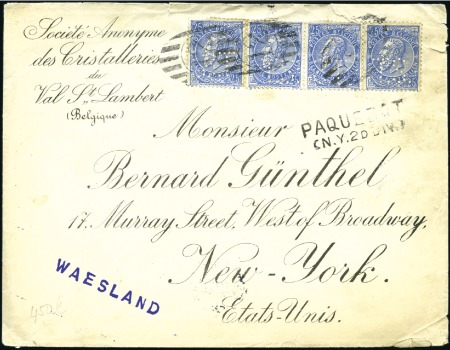 Société Anonyme
des Cristalleries
du
Val St Lambert
(Belgique)
PAQUEBOT
(N.Y.2D DIV.)
Monsieur
Bernard Günthel
17. Murray Street, West of Broadway,
New-York.
Etats-Unis.
WAESLAND